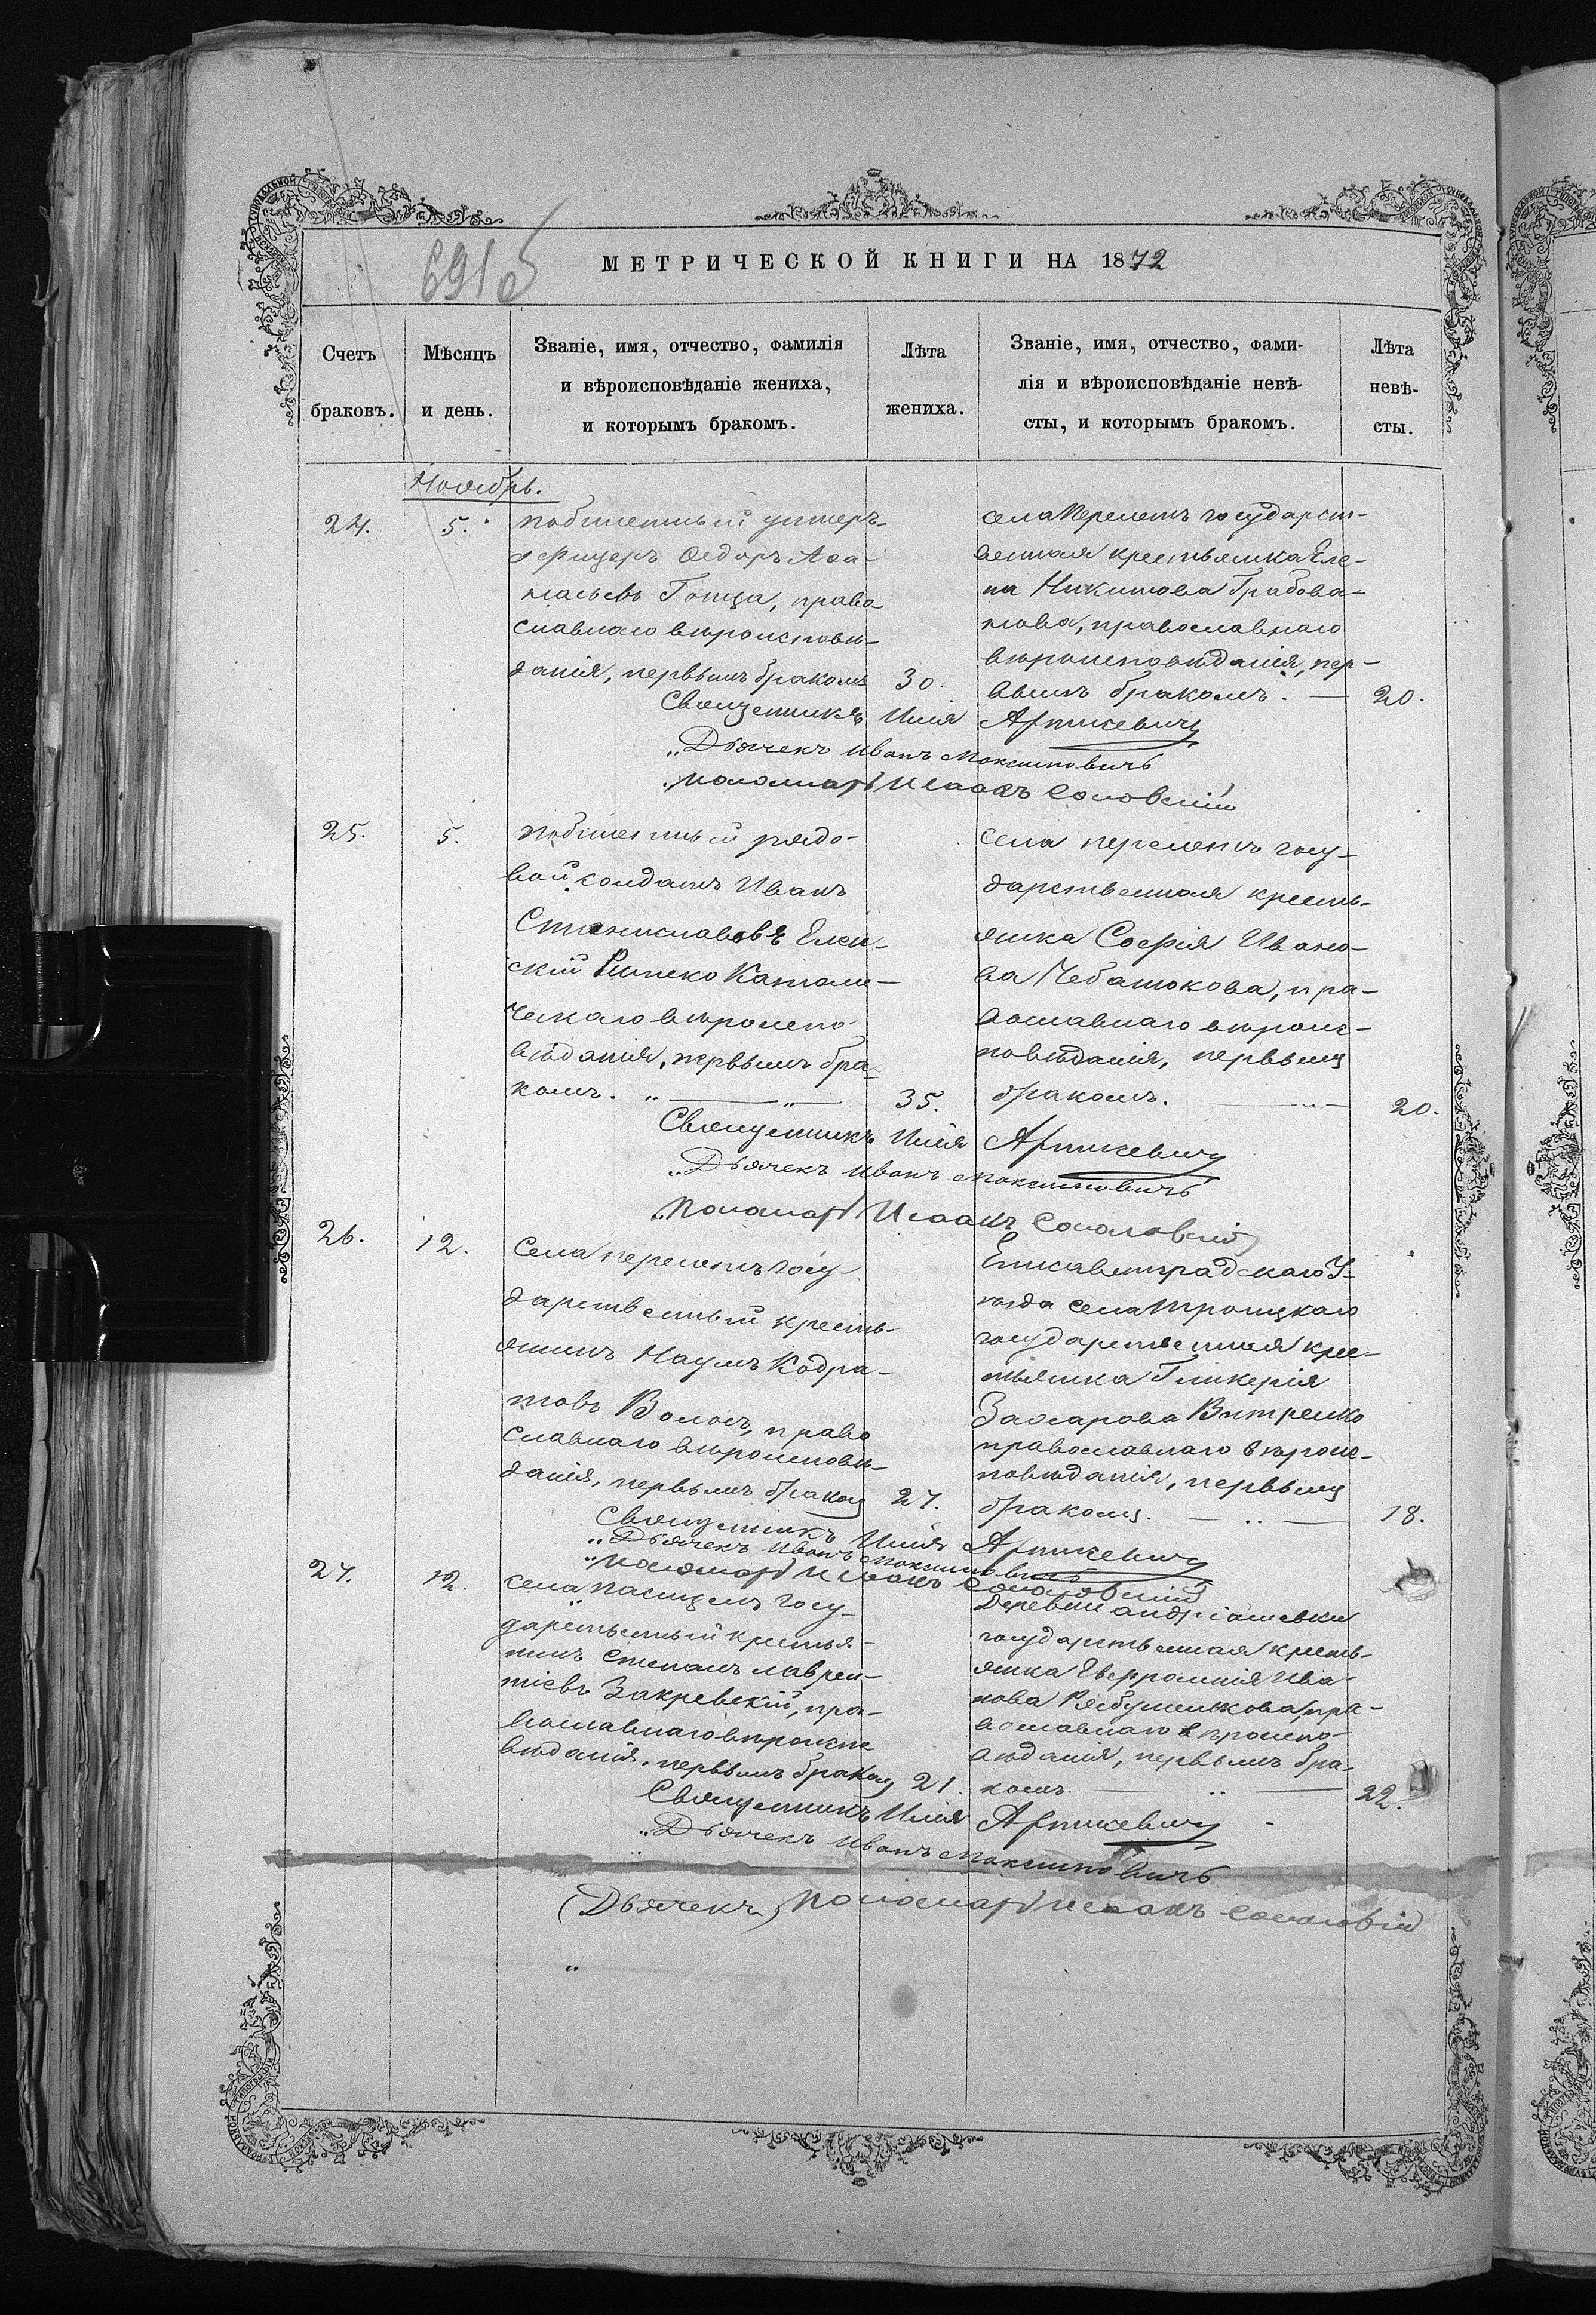 691 б
МЕТРИЧЕСКОЙ КНИГИ НА 1872
Счетъ браковъ.
Мѣсяцъ и день.
Званіе, имя, отчество, фамилія
и вѣроисповѣданіе жениха,
и которымъ бракомъ.
Лѣта жениха.
Званіе, имя, отчество, фами-
лія и вѣроисповѣданіе невѣ-
сты, и которымъ бракомъ.
Лѣта невѣ-
сты.
Ноябрь.
24.
5.
побилетный унтеръ-
офицеръ Ѳедоръ Аѳа-
насьевъ Гонца, право
славнаго вѣроисповѣ-
данія, первымъ бракомъ
30.
села Перелетъ государст-
венная крестьянка Еле-
на Никитова Грабова-
нова, православнаго
вѣроисповѣданія, пер-
вымъ бракомъ. —
20.
Священникъ Илія Артикевичъ
„Дьячекъ Иванъ Максимовичъ
„пономарь Исаакъ
25.
5.
побилетный рядо-
вой солдатъ Иванъ
Станиславовъ Елен-
скій Римско Катали-
ческаго вѣроиспо-
вѣданія, первымъ бра-
комъ. „ — „ —
35.
села перелетъ госу-
дарственная кресть-
янка Софія Ивано-
ва Чебатокова, пра-
вославнаго вѣроис-
повѣданія, первымъ
бракомъ.
20.
Священникъ Илія Артикевичъ
„Дьячекъ Иванъ Максимовичъ
„Пономарь Исаакъ
26.
12.
Села перелетъ госу
дарственный кресть-
янинъ Наумъ Кодра-
товъ Волосъ, право
славнаго вѣроисповѣ-
данія, первымъ бракомъ
27.
Елисаветградскаго У-
ѣзда села Троицкаго
государственная крес-
тьянка Гликерія
Захарова Витренко
православнаго вѣроис-
повѣданія, первымъ
бракомъ. — „ —
18.
Священникъ Илія Артикевичъ
„Дьячекъ Иванъ Максимовичъ
„пономарь Исаакъ
27.
12.
села Пасицелъ госу-
дарственный крестья-
нинъ Степанъ Лаврен-
тіевъ Закревскій, пра-
вославнаго вѣроиспо
вѣданія, первымъ бракомъ
21.
Деревни Андріяшевки
государственная кресть-
янка Евфросинія Ива-
нова пра-
вославнаго вѣроиспо-
вѣданія, первымъ бра-
комъ. — „ —
22.
Священникъ Илія Артикевичъ
„Дьячекъ Иванъ Максимовичъ
(Дьячекъ) Пономарь Исаакъ
„